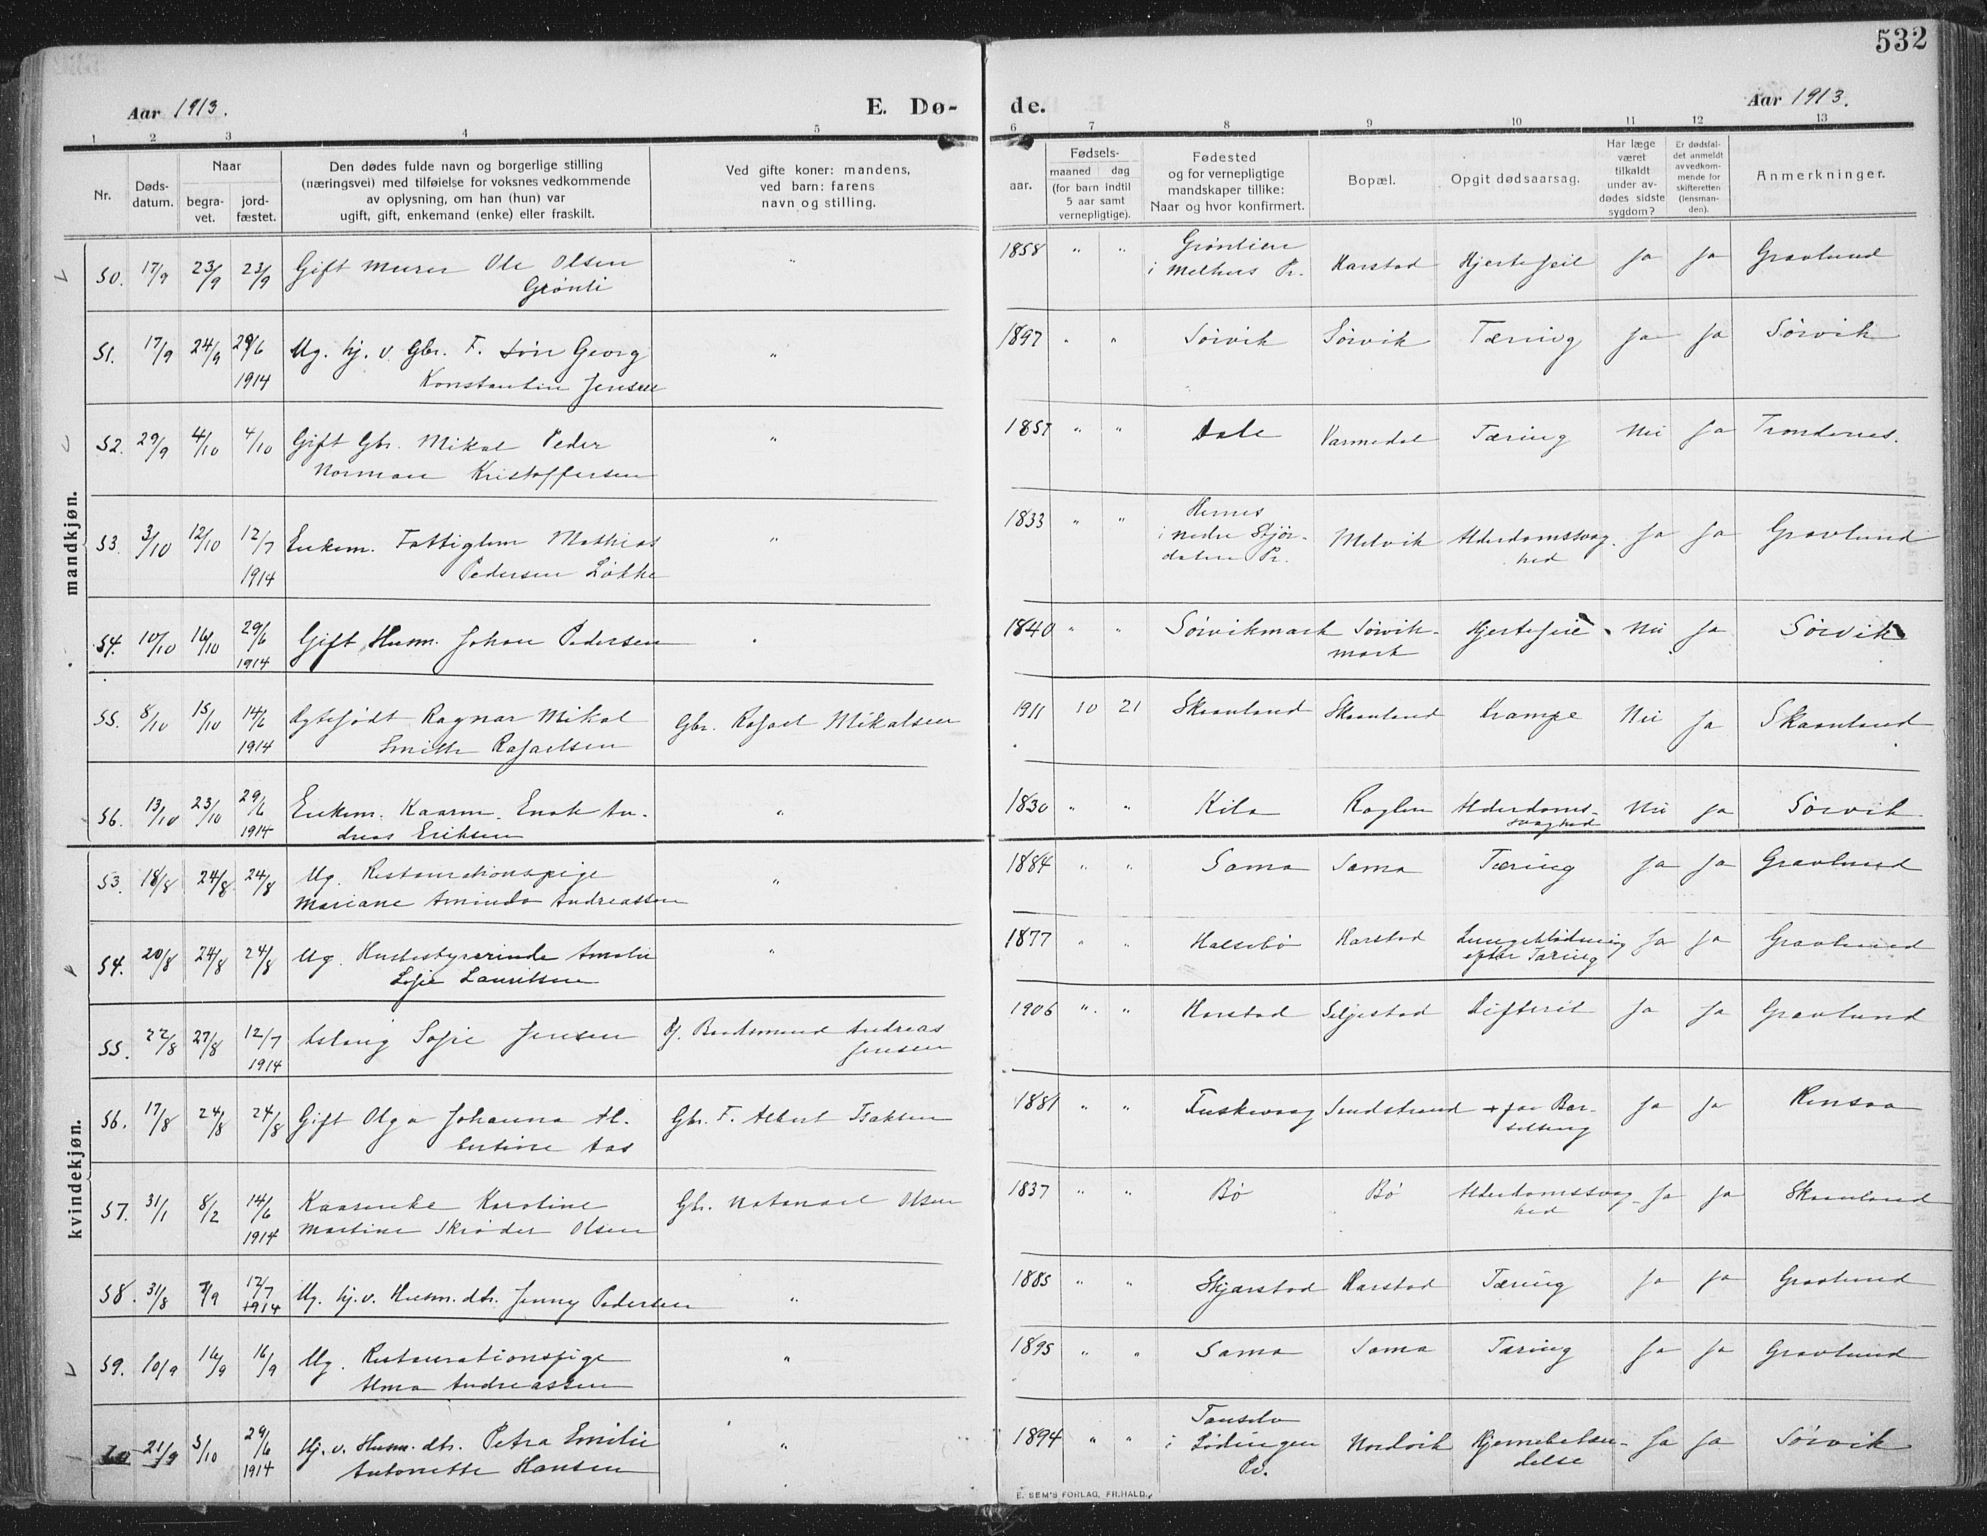 532
Aar 1913. E. Dø- de. Aar 1913.
1 2 3 4 5 6 7 8 9 10 11 12 13
Nr.
Døds-
datum.
Naar
begra-
vet.
jord-
fæstet.
Den dødes fulde navn og borgerlige stilling
(næringsvei) med tilføielse for voksnes vedkommende
av oplysning, om han (hun) var
ugift, gift, enkemand (enke) eller fraskilt.
Ved gifte koner: mandens,
ved barn: farens
navn og stilling.
Fødsels-
aar.
maaned dag
(for barn indtil
5 aar samt
vernepligtige).
Fødested
og for vernepligtige
mandskaper tillike:
Naar og hvor konfirmert.
Bopæl.
Opgit dødsaarsag.
Har læge
været
tilkaldt
under av-
dødes sidste
sygdom?
Er dødsfal-
det anmeldt
av vedkom-
mende for
skifteretten
(lensman-
den).
Anmerkninger.
mandkjøn.
50. 17/9 23/9 23/9 Gift Murer Ole Olsen " 1858 " " Grøntien
Grønli i Melhus Pr. Harstad Hjertefeil Ja Ja Gravlund
51. 17/9 24/9 29/6 Ug. hj. v. Gbr. F. søn Georg " 1897 " " Sørvik Sørvik Tæring Ja Ja Sørvik
1914 Konstantin Jensen
52. 29/9 4/10 4/10 Gift Gbr. Mikal Peder " 1857 " " Dale Varmedal Tæring Nei Ja Trondenes.
Norman Kristoffersen
53. 3/10 12/10 12/7 Enkem. Fattiglem Mathias " 1833 " " Hernes
1914 Pedersen Løkke i nedre Stjør-
dalen Pr. Melvik Alderdomssvag-
hed Ja Ja Gravlund
54. 10/10 16/10 29/6 Gift Husm. Johan Pedersen " 1840 " " Sørvikmark Sørvik- Hjertefeil Nei Ja Sørvik
1914 mark
55. 8/10 15/10 14/6 Egtefødt Ragnar Mikal Gbr. Rafael Mikalsen 1911 10 21 Skaanland Skaanland Krampe Nei Ja Skaanland
1914 Smith Rafaelsen
56. 13/10 23/10 29/6 Enkem. Kaarm. Enok An- " 1830 " " Kila Røglen Alderdoms- Nei Ja Sørvik
1914 dreas Eriksen svaghed
kvindekjøn.
53. 18/8 24/8 24/8 Ug. Restaurationspige " 1884 " " Sama Sama Tæring Ja Ja Gravlund
Mariane Aminda Andreassen
54. 20/8 24/8 24/8 Ug. Husbestyrerinde Amalie " 1877 " " Halsebø Harstad Lungeblødning Ja Ja Gravlund
Sofie Lauritsen efter Tæring
55. 22/8 27/8 12/7 Aslaug Sofie Jensen F. Baadsmand Andreas 1906 " " Harstad Seljestad Difterit Ja Ja Gravlund
1914 Jensen
56. 17/8 24/8 24/8 Gift Olga Johanna Al- Gbr. F. Albert Isaksen 1881 " " Fuskevaag Sandstrand + paa Bar- Ja Ja Rensaa
bertine Aas selseng
57. 31/1 8/2 14/6 Kaarenke Karoline Gbr. Natanael Olsen 1837 " " Bø Bø Alderdomssvag- Ja Ja Skaanland
1914 Martine Skrøder Olsen hed
58. 31/8 7/9 12/7 Ug. hj. v. Husm. dtr. Jenny Pedersen " 1885 " " Skjærstad Harstad Tæring Ja Ja Gravlund
1914
59. 10/9 16/9 16/9 Ug. Restaurationspige " 1895 " " Sama Sama Tæring Ja Ja Gravlund
Alma Andreassen
60 21/9 5/10 29/6 Hj. v. Husm. dtr. Petra Emilie " 1894 " " i Lødingen Nordvik Hjernebetæn- Ja Ja Sørvik
1914 Antonette Hansen Pr. delse
E. SEM'S FORLAG, FR.HALD.